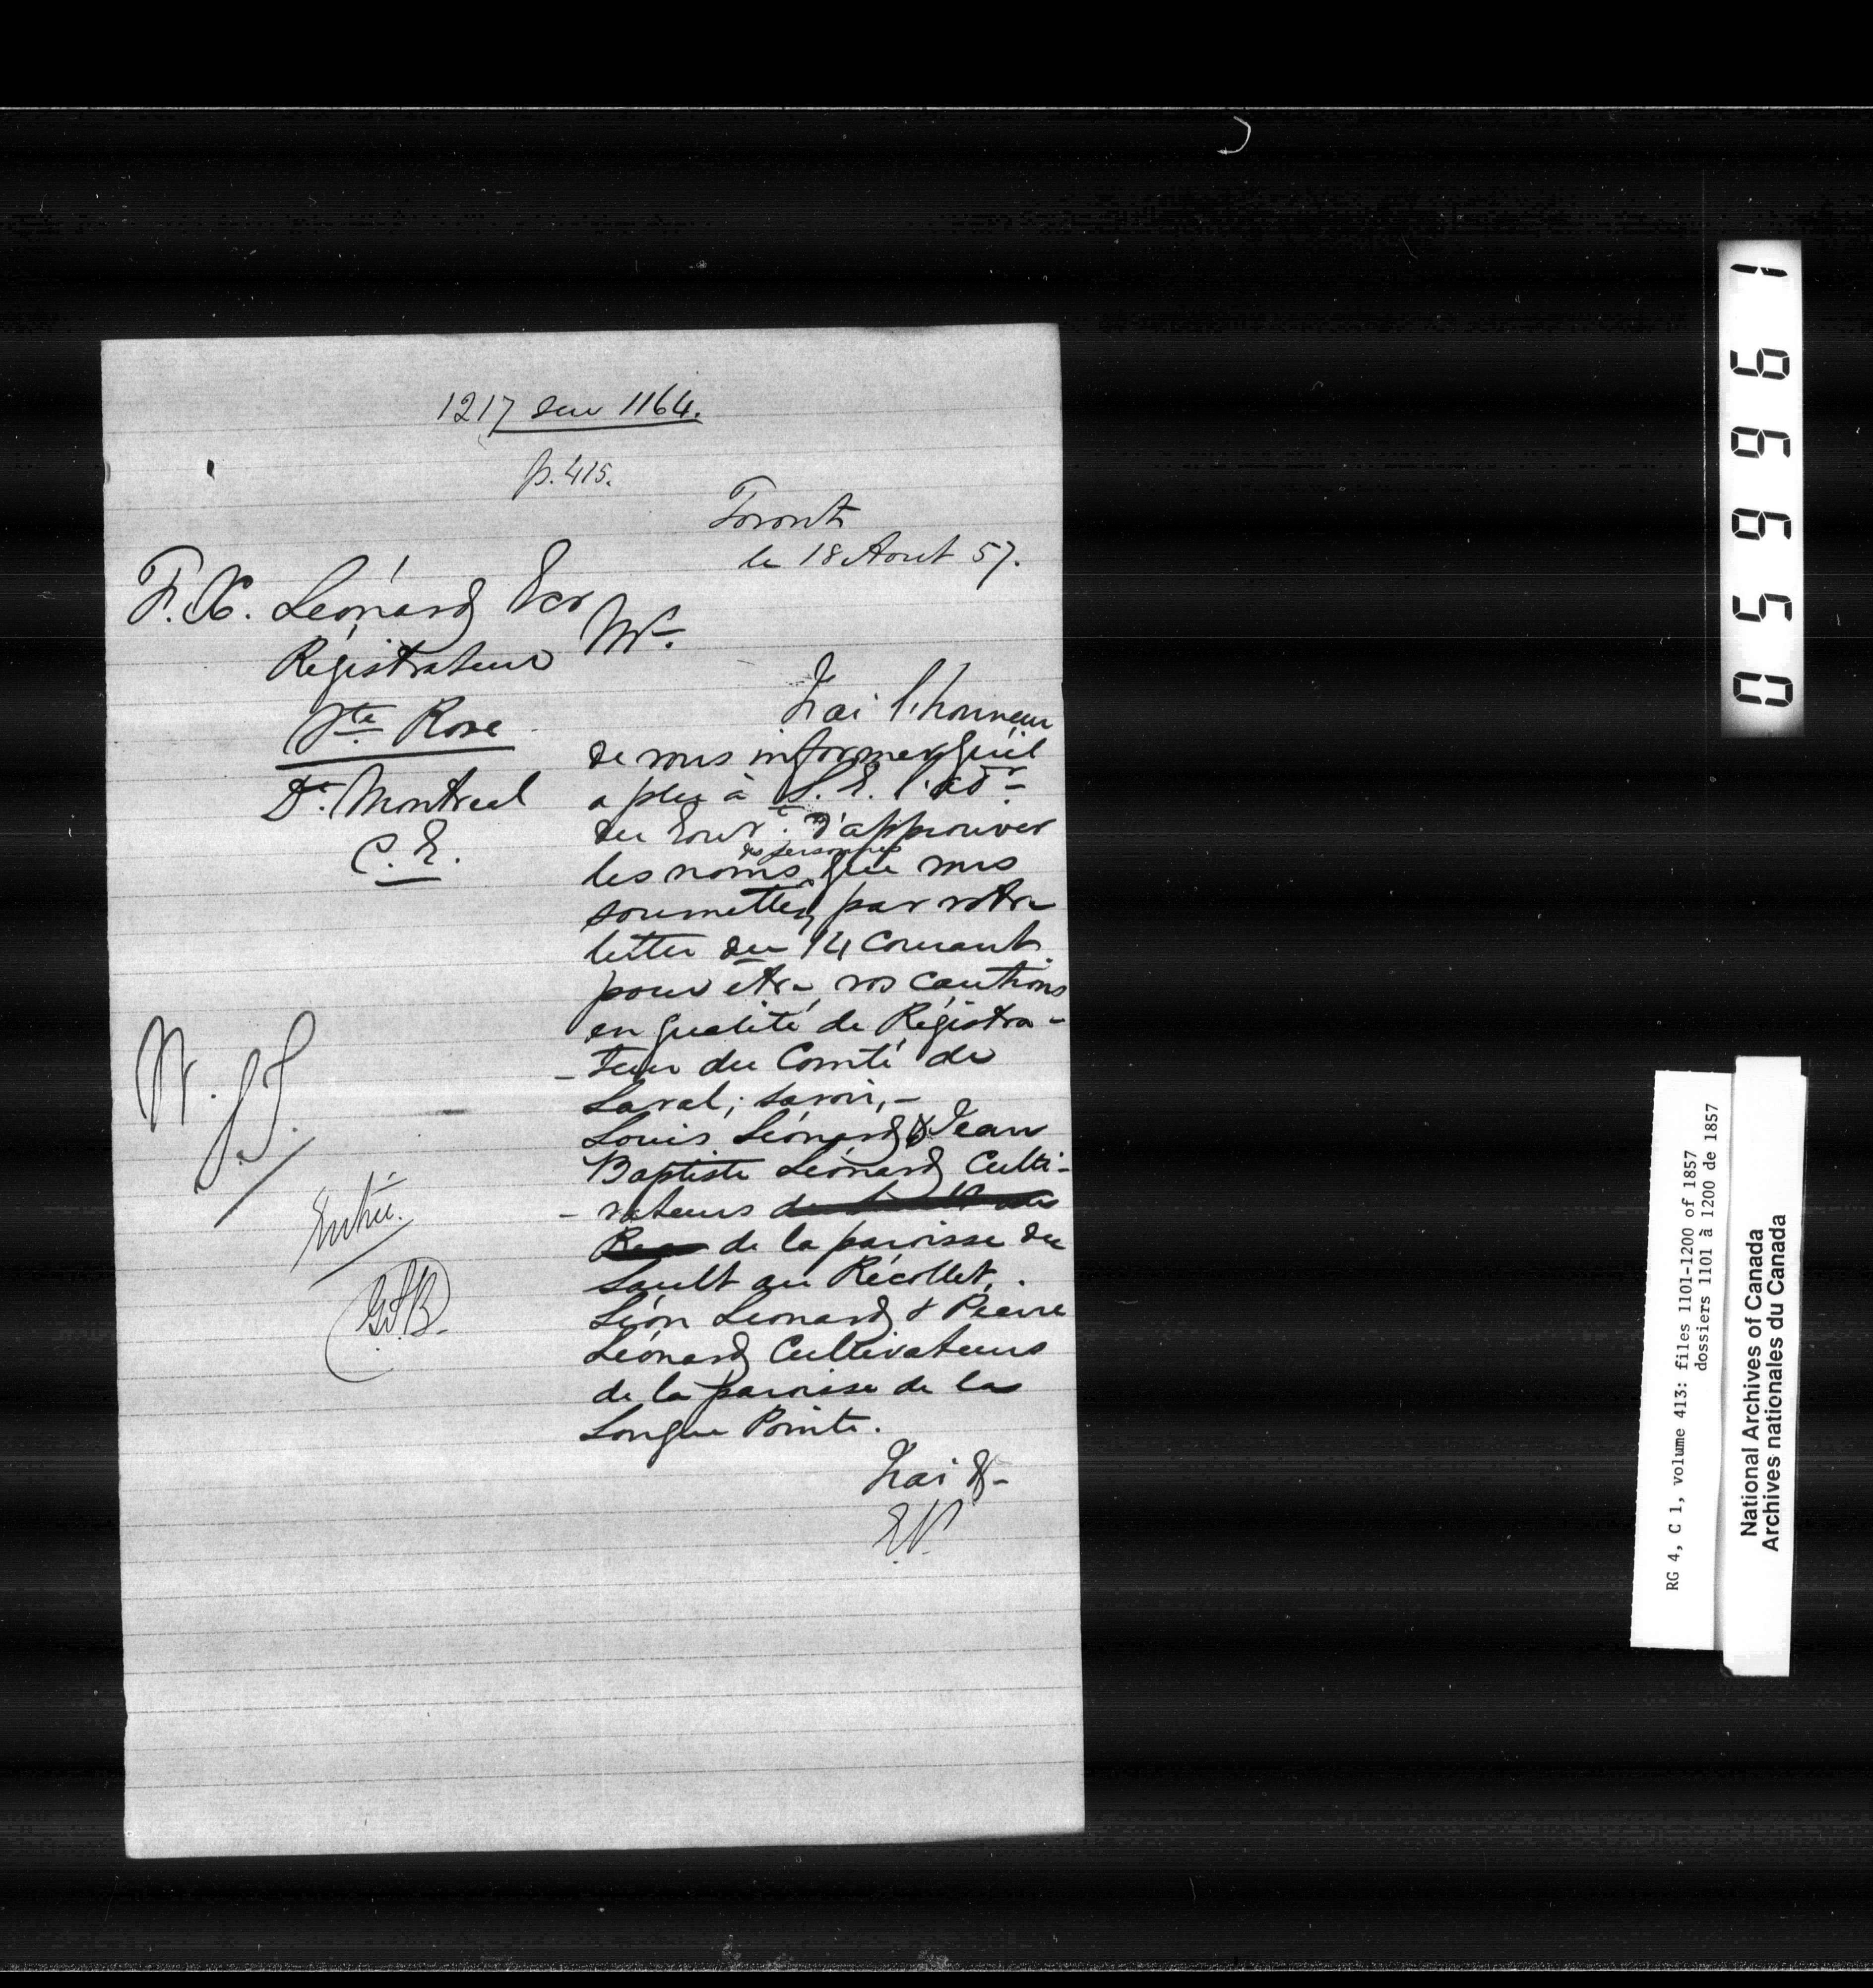 1217 sur 1164.
p. 415.
Toronto
le 18 Aout 57.
F. X. Léonard Ecr
Régistrateur
Ste Rose
Dt. Montreal
C. E.
Mr.
J'ai l'honneur
de vous informer qu'il
a plu à S. E. l'adr
du Gouvt. d'approuver
les noms des personnes que vous
soumettez par votre
lettre du 14 Courant
pour être vos cautions
en qualité de Régistra-
-teur du Comté de
Laval; savoir,-
Louis Léonard & Jean
Baptiste Léonard Culti-
-vateurs
de la paroisse du
Sault au Récollet,
Léon Leonard & Pierre
Léonard Cultivateurs
de la paroisse de la
Longue Pointe.
J'ai &-
E.P.
Entré.
059961
RG 4, C 1, volume 413: files 1101-1200 of 1857
dossiers 1101 à 1200 de 1857
National Archives of Canada
Archives nationales du Canada